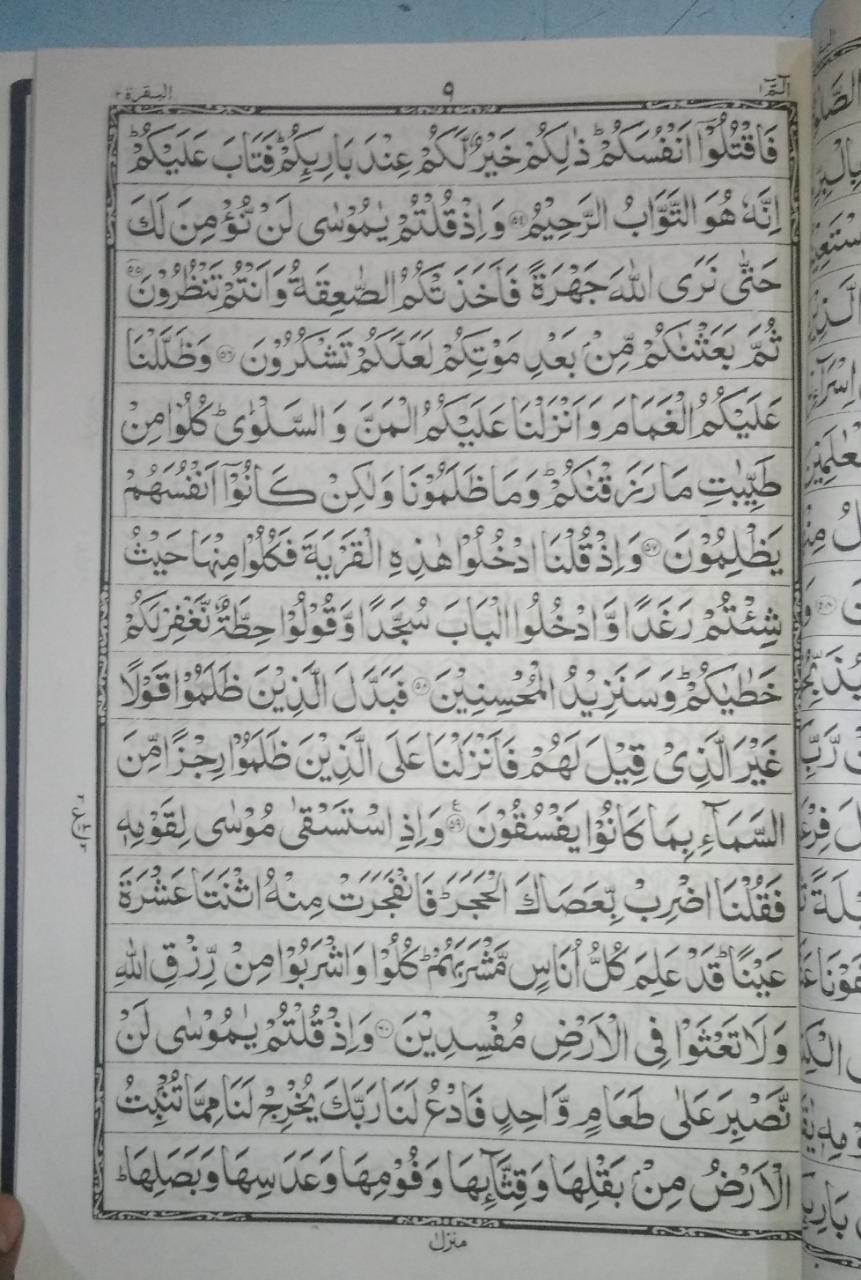 الٓمّٓ ١ ٩ البقرة ٢
فَاقْتُلُوْۤا اَنْفُسَكُمْؕ ذٰلِكُمْ خَيْرٌ لَّكُمْ عِنْدَ بَارِىِٕكُمْؕ فَتَابَ عَلَيْكُمْؕ
اِنَّهٗ هُوَ التَّوَّابُ الرَّحِيْمُ ﴿۵۴﴾ وَاِذْ قُلْتُمْ يٰمُوْسٰى لَنْ نُّؤْمِنَ لَكَ
حَتّٰى نَرَى اللّٰهَ جَهْرَةً فَاَخَذَتْكُمُ الصّٰعِقَةُ وَاَنْتُمْ تَنْظُرُوْنَ ﴿۵۵﴾
ثُمَّ بَعَثْنٰكُمْ مِّنْۢ بَعْدِ مَوْتِكُمْ لَعَلَّكُمْ تَشْكُرُوْنَ ﴿۵۶﴾ وَظَلَّلْنَا
عَلَيْكُمُ الْغَمَامَ وَاَنْزَلْنَا عَلَيْكُمُ الْمَنَّ وَالسَّلْوٰىؕ كُلُوْا مِنْ
طَيِّبٰتِ مَا رَزَقْنٰكُمْؕ وَمَا ظَلَمُوْنَا وَلٰكِنْ كَانُوْۤا اَنْفُسَهُمْ
يَظْلِمُوْنَ ﴿۵۷﴾ وَاِذْ قُلْنَا ادْخُلُوْا هٰذِهِ الْقَرْيَةَ فَكُلُوْا مِنْهَا حَيْثُ
شِئْتُمْ رَغَدًا وَّادْخُلُوا الْبَابَ سُجَّدًا وَّقُوْلُوْا حِطَّةٌ نَّغْفِرْ لَكُمْ
خَطٰيٰكُمْؕ وَسَنَزِيْدُ الْمُحْسِنِيْنَ ﴿۵۸﴾ فَبَدَّلَ الَّذِيْنَ ظَلَمُوْا قَوْلًا
غَيْرَ الَّذِىْ قِيْلَ لَهُمْ فَاَنْزَلْنَا عَلَى الَّذِيْنَ ظَلَمُوْا رِجْزًا مِّنَ
السَّمَآءِ بِمَا كَانُوْا يَفْسُقُوْنَ ﴿۵۹﴾ وَاِذِ اسْتَسْقٰى مُوْسٰى لِقَوْمِهٖ
فَقُلْنَا اضْرِبْ بِّعَصَاكَ الْحَجَرَؕ فَانْفَجَرَتْ مِنْهُ اثْنَتَا عَشْرَةَ
عَيْنًاؕ قَدْ عَلِمَ كُلُّ اُنَاسٍ مَّشْرَبَهُمْؕ كُلُوْا وَاشْرَبُوْا مِنْ رِّزْقِ اللّٰهِ
وَلَا تَعْثَوْا فِى الْاَرْضِ مُفْسِدِيْنَ ﴿۶۰﴾ وَاِذْ قُلْتُمْ يٰمُوْسٰى لَنْ
نَّصْبِرَ عَلٰى طَعَامٍ وَّاحِدٍ فَادْعُ لَنَا رَبَّكَ يُخْرِجْ لَنَا مِمَّا تُنْۢبِتُ
الْاَرْضُ مِنْۢ بَقْلِهَا وَقِثَّآىِٕهَا وَفُوْمِهَا وَعَدَسِهَا وَبَصَلِهَاؕ
منزل ١